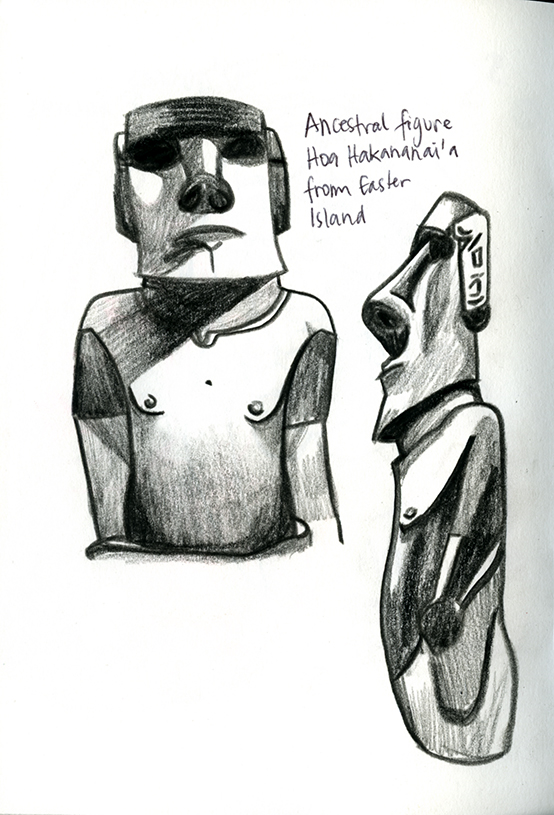 Ancestral figure
Hoa Hakananai'a
from Easter
Island